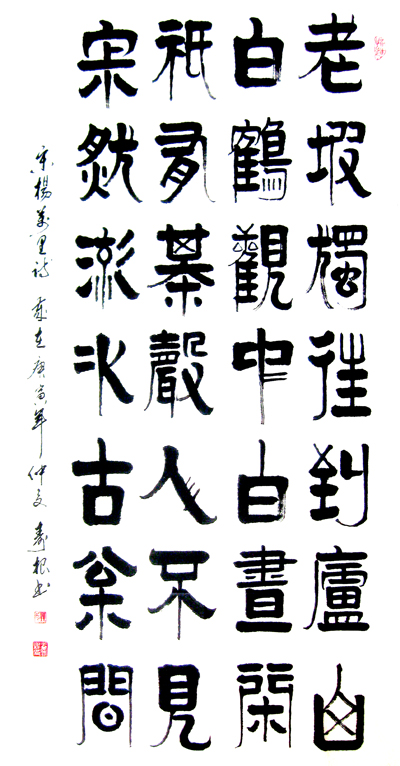 老坡獨往到廬山
白鶴觀中白晝閑
祇有棊聲人不見
寂然流水古松間
宋楊萬里詩 歲在庚寅年仲夏 壽根書